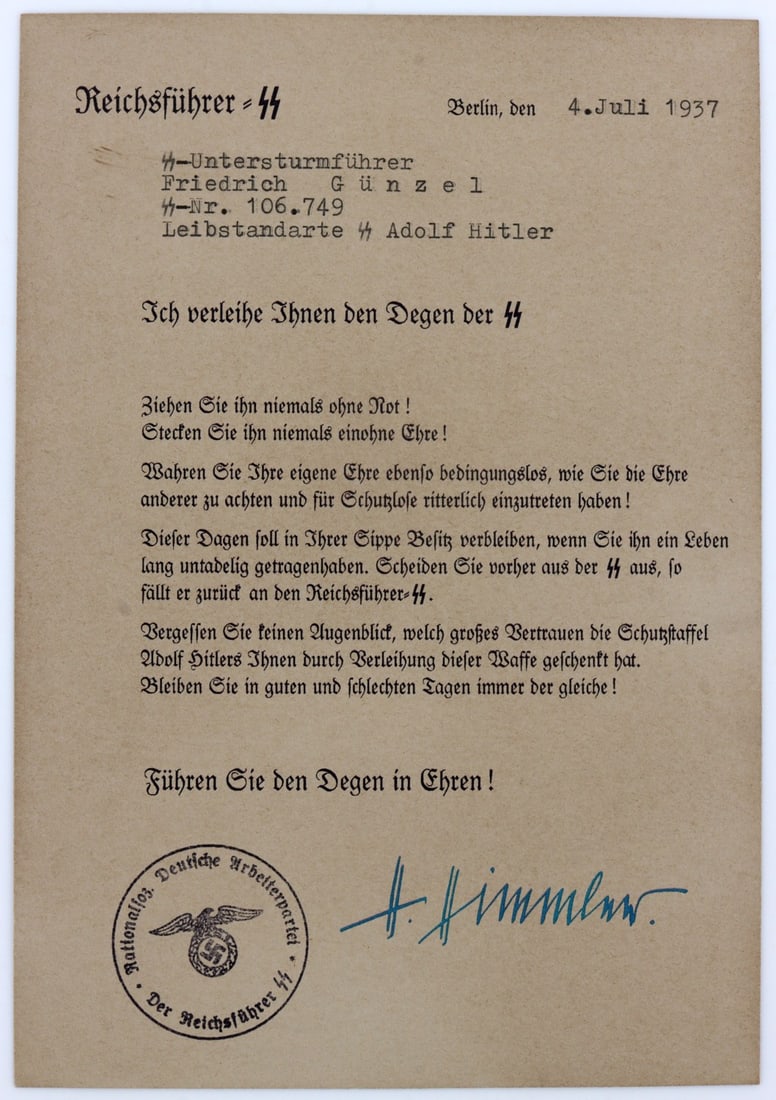 Reichsführer-SS
Berlin, den 4.Juli 1937
SS-Untersturmführer
Friedrich G ü n z e l
SS-Nr. 106.749
Leibstandarte SS Adolf Hitler
Ich verleihe Ihnen den Degen der SS
Ziehen Sie ihn niemals ohne Not!
Stecken Sie ihn niemals einohne Ehre!
Wahren Sie Ihre eigene Ehre ebenso bedingungslos, wie Sie die Ehre
anderer zu achten und für Schutzlose ritterlich einzutreten haben!
Dieser Dagen soll in Ihrer Sippe Besitz verbleiben, wenn Sie ihn ein Leben
lang untadelig getragenhaben. Scheiden Sie vorher aus der SS aus, so
fällt er zurück an den Reichsführer-SS.
Vergessen Sie keinen Augenblick, welch großes Vertrauen die Schutzstaffel
Adolf Hitlers Ihnen durch Verleihung dieser Waffe geschenkt hat.
Bleiben Sie in guten und schlechten Tagen immer der gleiche!
Führen Sie den Degen in Ehren!
Nationalsoz. Deutsche Arbeiterpartei
Der Reichsführer SS
H. Himmler.